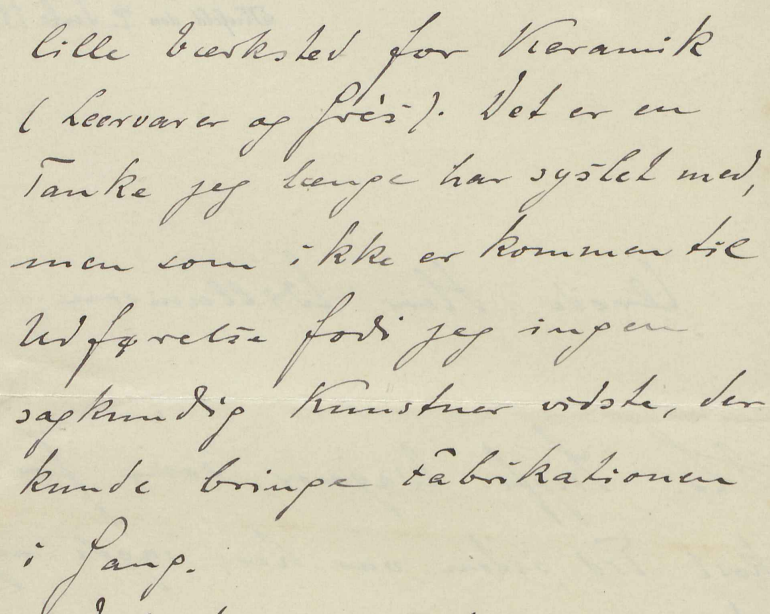 lille Værksted for Keramik
(Leervarer og Grès). Det er en
Tanke jeg længe har syslet med,
men som ikke er kommen til
Udførelse fodi jeg ingen
sagkundig Kunstner vidste, der
kunde bringe Fabrikationen
i Gang.